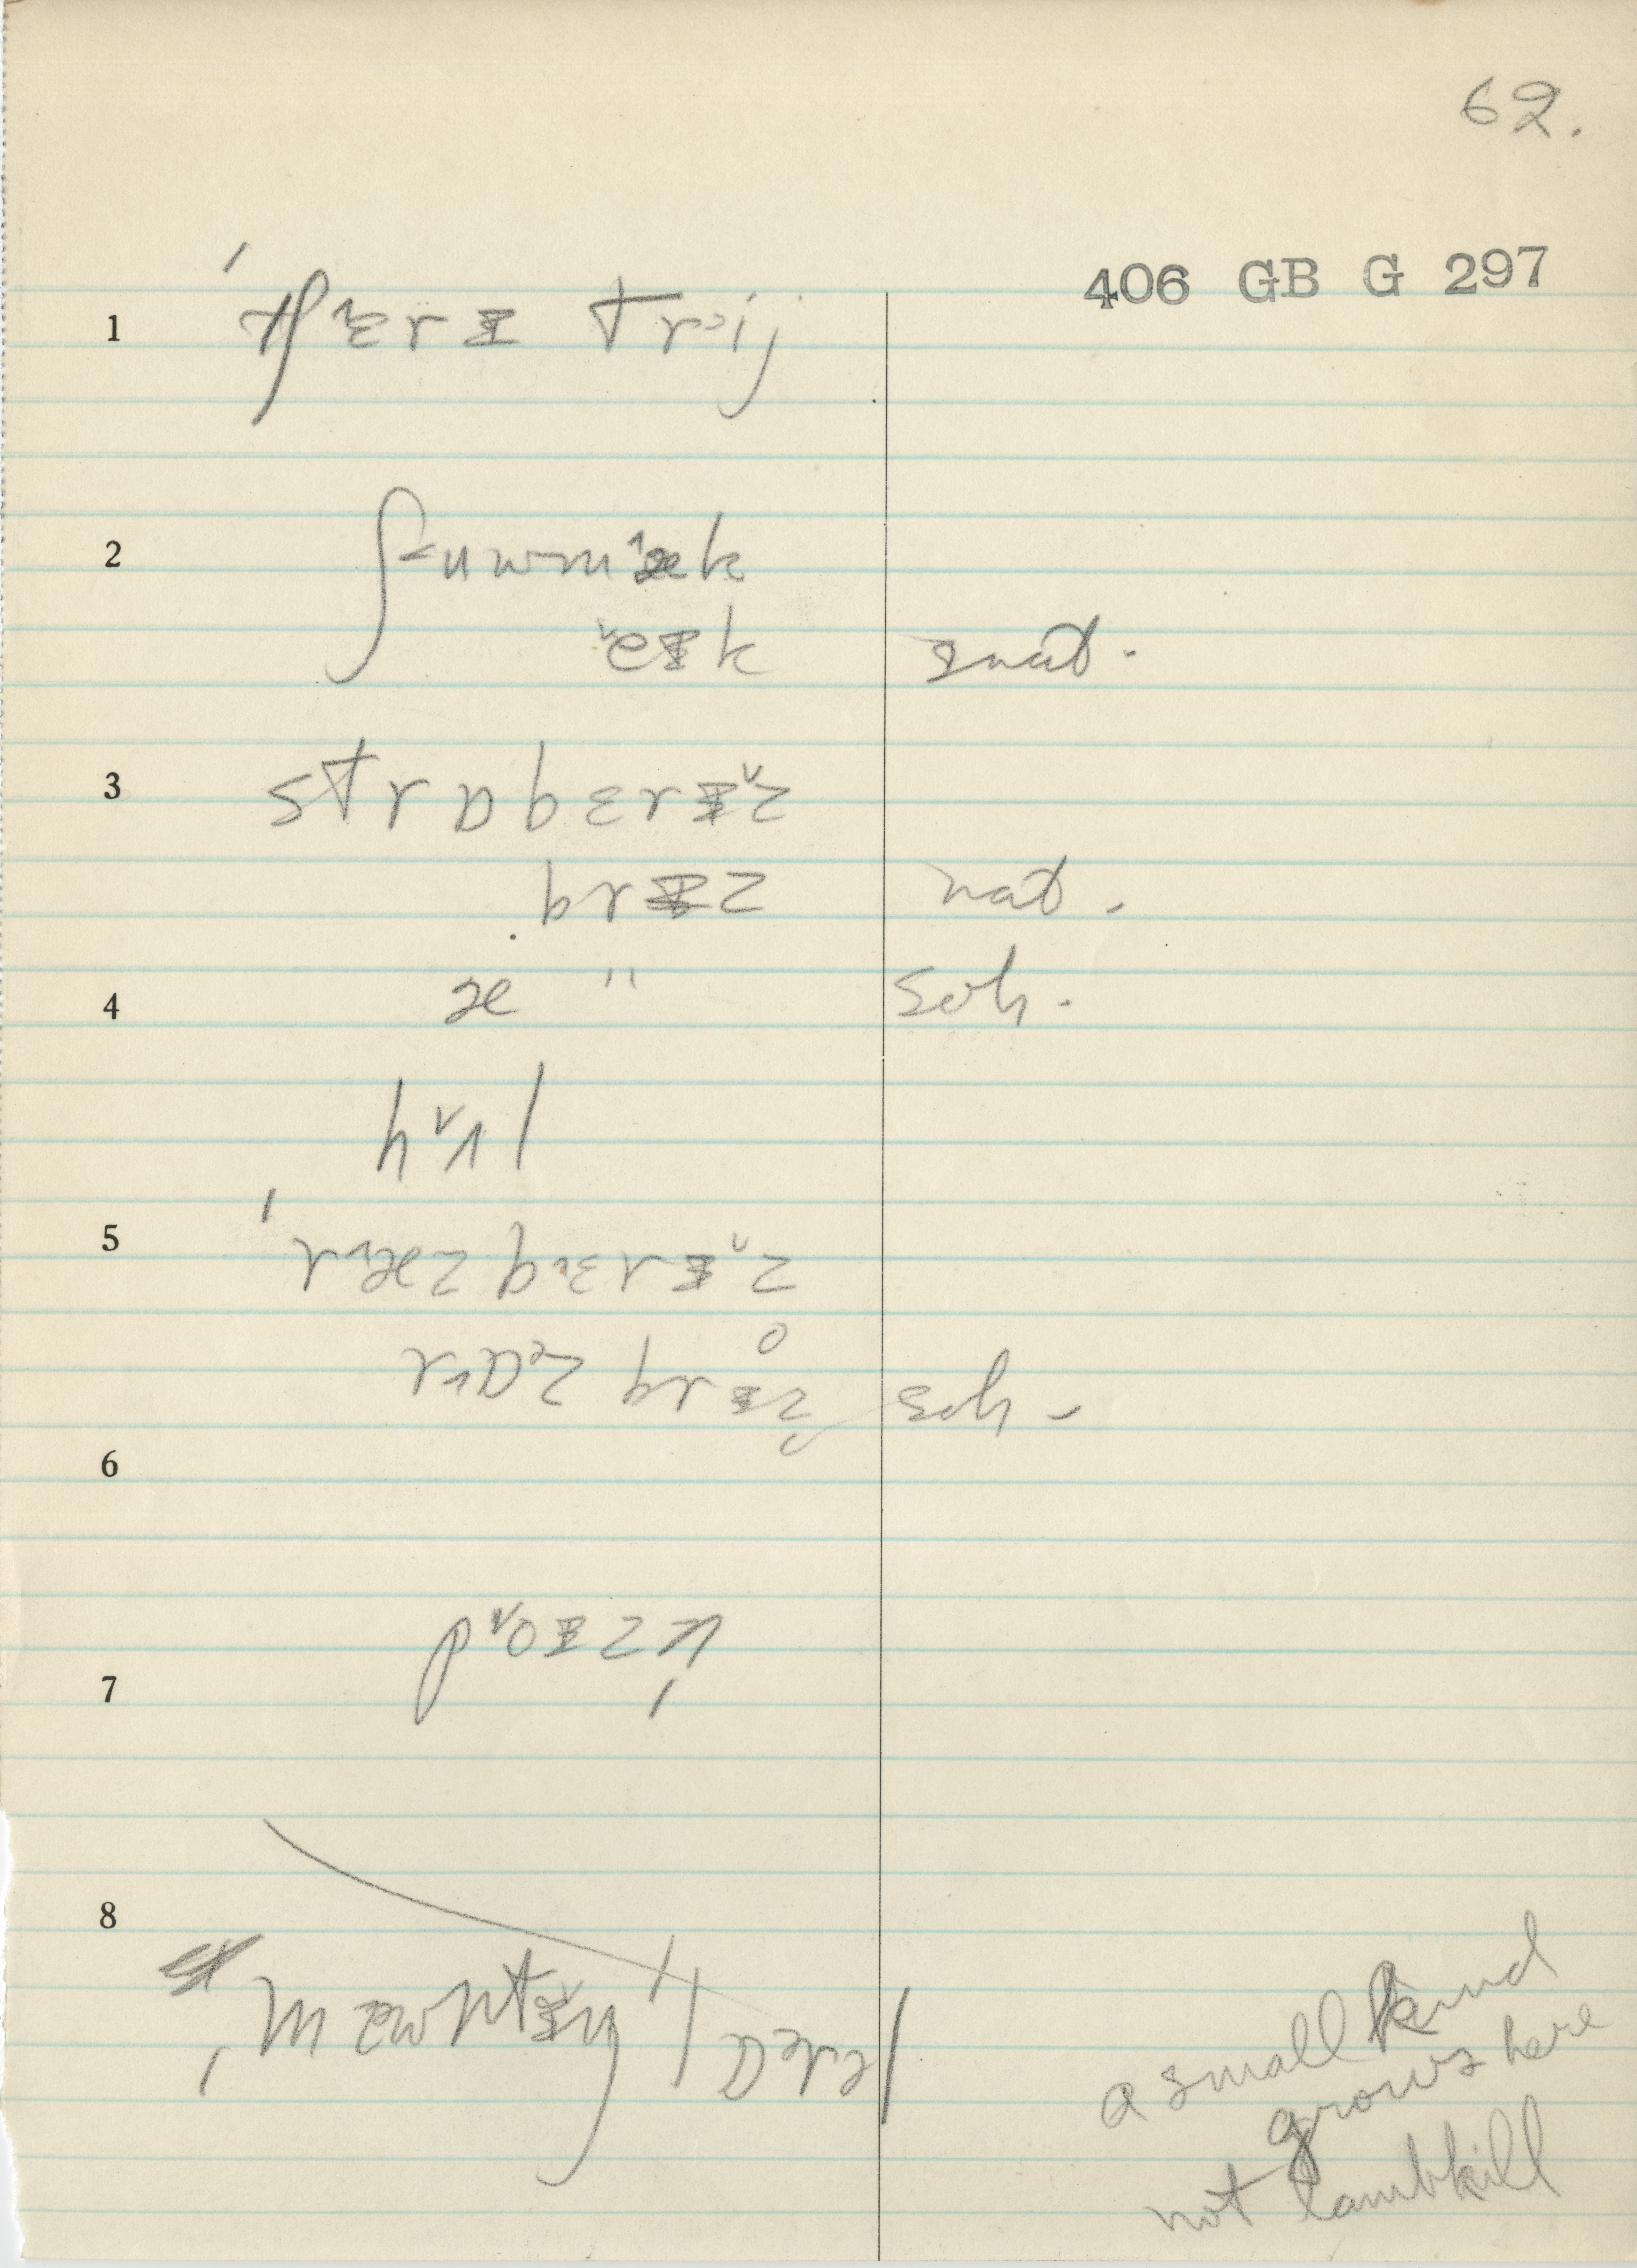 62.
406 GB G 297
1 ˈtʃɛ˄rɪ tri˃j
2 ʃuwmæ˄k
e˅ɪk snat.
3 strɒbɛrɪ˅z
brɪz nat.
4 æ " soh.
hʌ˅l
5 ˈræ˄zbɛrɪ˅z
rɒz brɪz̥ soh -
6
7 pɔ˅ɪzn̩
8 mæwntɪ˅n lɒrəl
a small kind
grows here
not lambkill